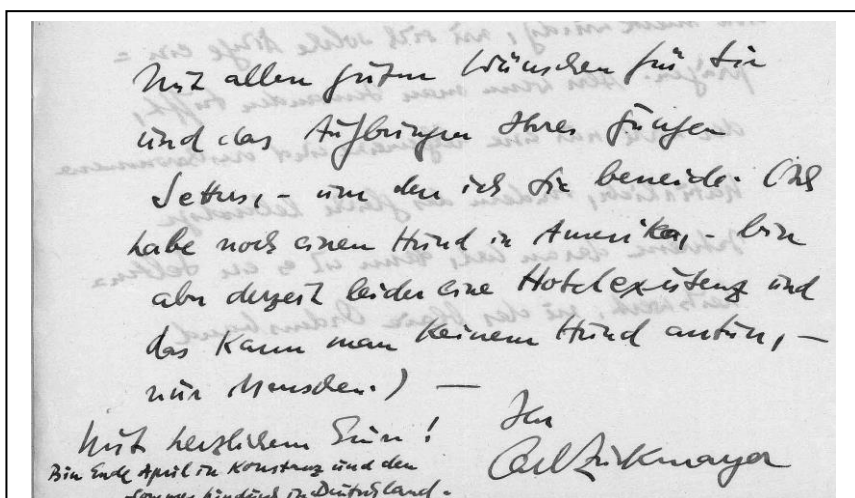 Mit allen guten Wünschen für Sie
und das Aufbringen Ihres jungen
Setters, – um den ich Sie beneide. (Ich
habe noch einen Hund in Amerika, – bin
aber derzeit leider eine Hotelexistenz und
das kann man keinem Hund antun, –
nur Menschen.) —
Ihr
Mit herzlichem Gruss!
Carl Zuckmayer
Bin Ende April in Konstanz und den
Sommer hindurch in Deutschland.